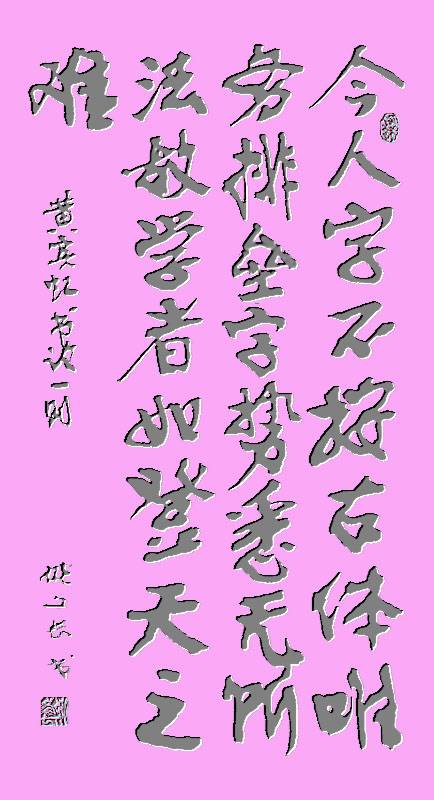 今人字不按古体唯
务排垒字势悉无所
法故学者如登天之
难
黄书论一则
书